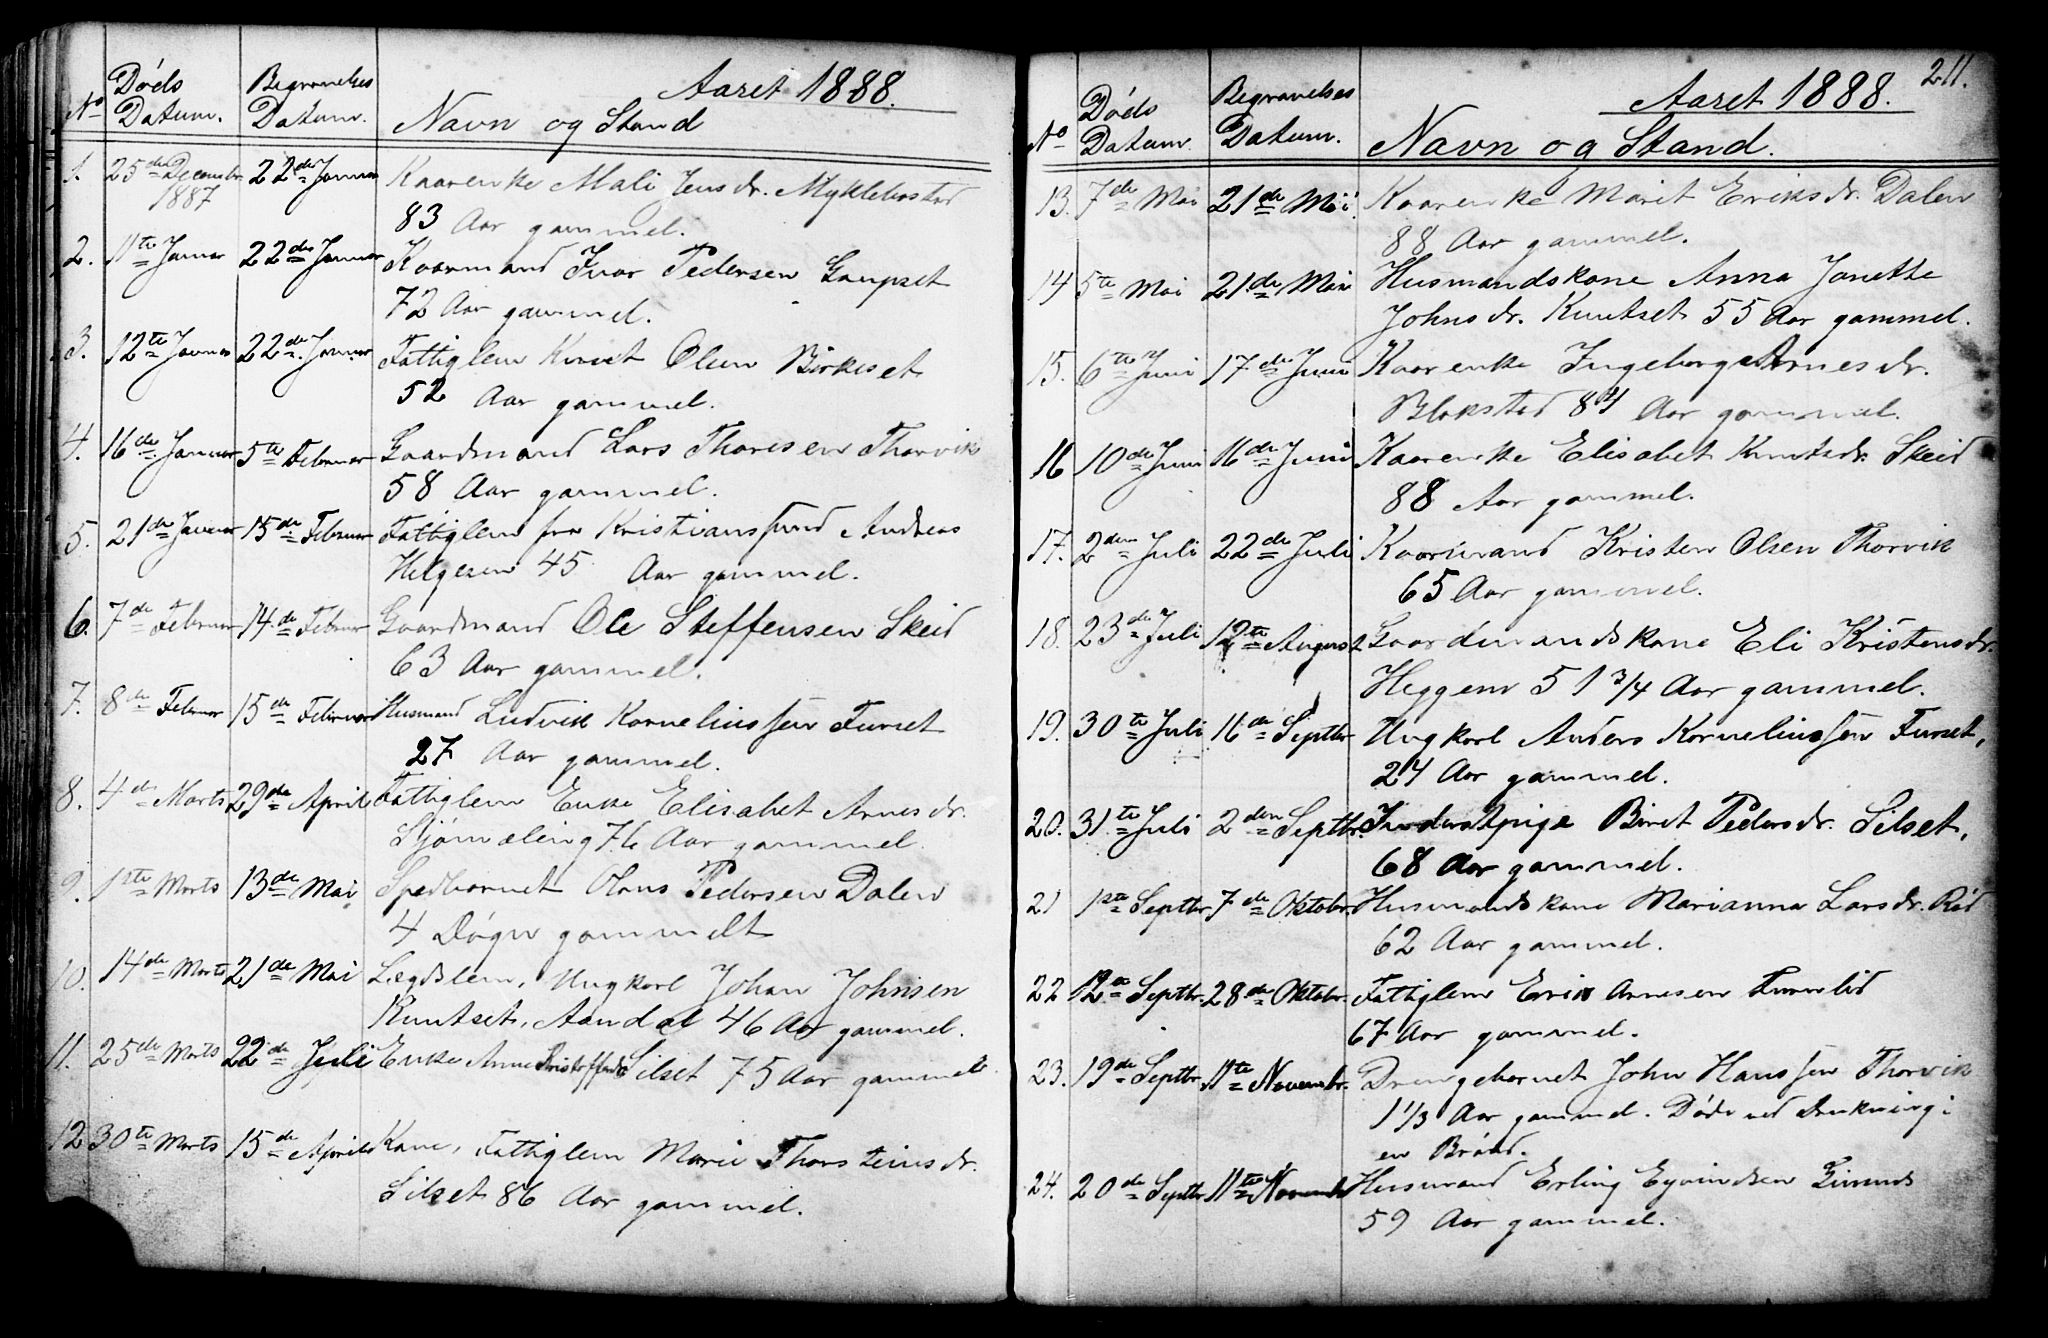 Aaret 1888.
No Døds Datum. Begravelses Datum. Navn og Stand
1. 25de Decembr 1887 22de Januar Kaarenke Mali Jensdr. Myklebostad
83 Aar gammel.
2. 11te Januar 22de Januar Kaarmand Ivar Pedersen Gaupset
72 Aar gammel.
3. 12te Januar 22de Januar Fattiglem Knut Olsen Birkeset
52 Aar gammel.
4. 16de Januar 5te Februar Gaardmand Lars Thoresen Thorvik
58 Aar gammel.
5. 21de Januar 15de Februar Fattiglem fra Kristianssund Andreas
Helgesen 45 Aar gammel.
6. 7de Februar 14de Februar Gaardmand Ole Steffensen Skeid
63 Aar gammel.
7. 8de Februar 15de Februar Husmand Ludvik Korneliussen Furset
27 Aar gammel.
8. 4de Marts 29de April Fattiglem Enke Elisabet Arnesdr.
Stjørnæling 76 Aar gammel.
9. 1ste Marts 13de Mai Spedbarnet Olaus Pedersen Dalen
4 Døgn gammelt
10. 14de Marts 21de Mai Lægdslem, Ungkarl Johan Johnsen
Knutset, Aandal 46 Aar gammel.
11. 25de Marts 22de Juli Enke Anne Kristoffersdr. Silset 75 Aar gammel.
12 30te Marts 15de April Kone, Fattiglem Marie Thorsteinsdr.
Silset 86 Aar gammel.
211.
Aaret 1888.
No Døds Datum. Begravelses Datum. Navn og Stand.
13. 7de Mai 21de Mai Kaarenke Marit Eriksdr. Dalen
88 Aar gammel.
14 5te Mai 21de Mai Husmandskone Anna Janette
Johnsdr. Knutset 55 Aar gammel.
15. 6te Juni 17de Juni Kaarenke Ingeborg Arnesdr.
Blakstad 84 Aar gammel.
16 10de Juni 16de Juni Kaarenke Elisabet Knutsdr. Skeid
88 Aar gammel.
17. 2den Juli 22de Juli Kaarmand Kristen Olsen Thorvik
65 Aar gammel.
18. 23de Juli 12te August Gaardmandskone Eli Kristensdr.
Heggem 51 3/4 Aar gammel.
19. 30te Juli 16de Septbr. Ungkarl Anders Korneliussen Furset,
24 Aar gammel.
20. 31te Juli 2den Septbr. Inderstpige Beret Pedersdr. Silset,
68 Aar gammel.
21 1ste Septbr. 7de Oktobr. Husmandskone Marianna Larsdr. Rød
62 Aar gammel.
22 12te Septbr. 28de Oktobr. Fattiglem Erik Arnesen
67 Aar gammel.
23. 19de Septbr. 11te Novembr. Drengebarnet John Hanssen Thorvik
1 1/3 Aar gammel. Døde ved Drukning i
en Brønd.
24. 20de Septbr. 11te Novembr Husmand Erling Eyvindsen Gimnes
59 Aar gammel.